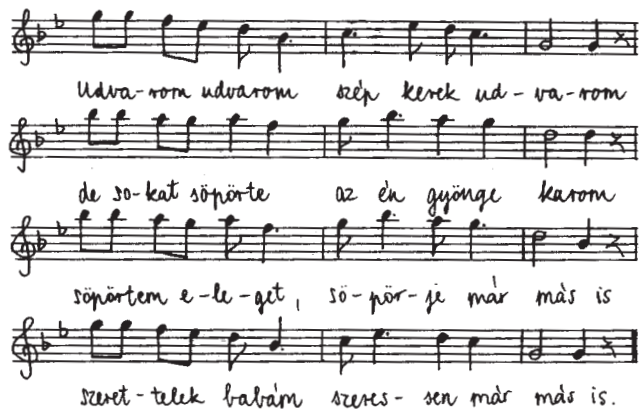 Udva-rom udvarom szép kerek ud-va-rom
de so-kat söpörte az én gyönge karom
söpörtem e-le-get, sö-pör-je már más is
szeret-telek babám szeres-sen már más is.